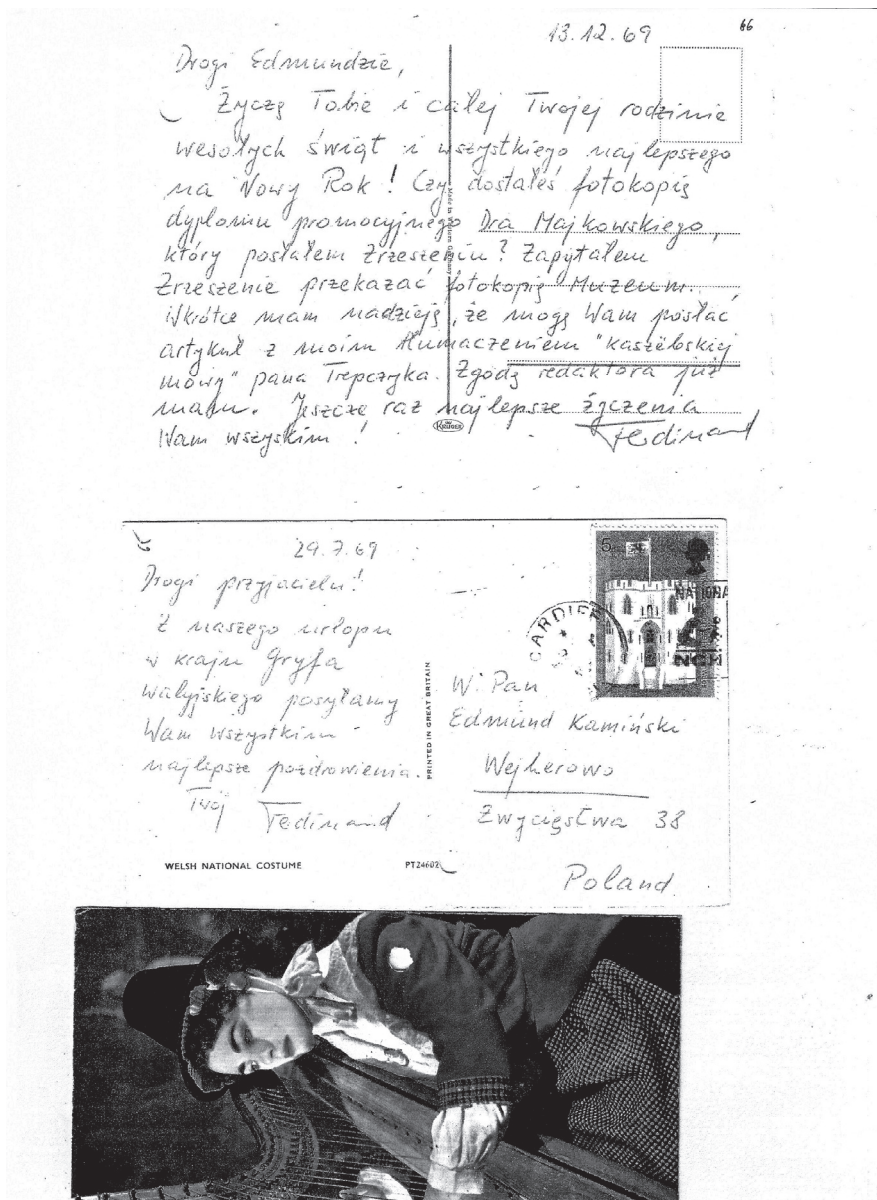 13.12.69
66
Drogi Edmundzie,
Życzę Tobie i całej Twojej rodzinie
wesołych świąt i wszystkiego najlepszego
na Nowy Rok! Czy dostałeś fotokopię
dyplomu promocyjnego Dra Majkowskiego,
który posłałem Zrzeszeniu? Zapytałem
Zrzeszenie przekazać fotokopię Muzeum.
Wkrótce mam nadzieję, że mogę Wam posłać
artykuł z moim tłumaczeniem "kaszëbskiej
mowy" pana Trepczyka. Zgodę redaktora już
mam. Jeszcze raz najlepsze życzenia
Wam wszyskim!
Ferdinand
Made in Western Germany
KRÜGER
29.7.69
Drogi przyjacielu!
Z naszego urlopu
w kraju Gryfa
walijskiego posyłamy
Wam wszystkim
najlepsze pozdrowienia.
Twój Ferdinand
WELSH NATIONAL COSTUME
PT24602
PRINTED IN GREAT BRITAIN
5
CARDIFF
NATIONA
NCH
W. Pan
Edmund Kamiński
Wejherowo
Zwycięstwa 38
Poland